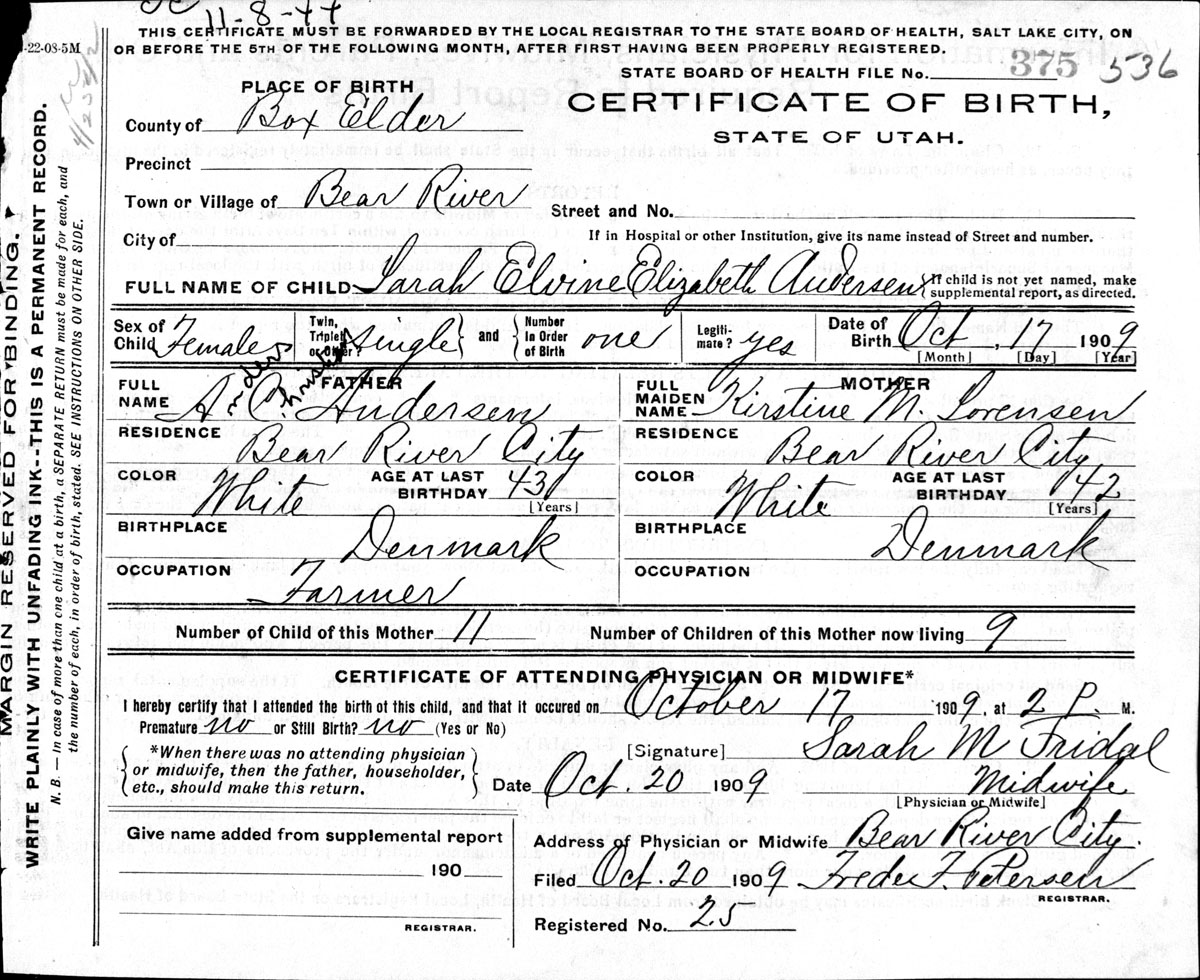 11-8-44
THIS CERTIFICATE MUST BE FORWARDED BY THE LOCAL REGISTRAR TO THE STATE BOARD OF HEALTH, SALT LAKE CITY, ON
OR BEFORE THE 5TH OF THE FOLLOWING MONTH, AFTER FIRST HAVING BEEN PROPERLY REGISTERED.
-22-08-5M
STATE BOARD OF HEALTH FILE No. 375 536
PLACE OF BIRTH
CERTIFICATE OF BIRTH,
STATE OF UTAH.
County of Box Elder
Precinct
Town or Village of Bear River
Street and No.
City of
If in Hospital or other Institution, give its name instead of Street and number.
FULL NAME OF CHILD Sarah Elvine Elizabeth Andersen { If child is not yet named, make
supplemental report, as directed.
Sex of Child Female Twin, Triplet or Other? single } and { Number In Order of Birth one Legiti- mate? yes Date of Birth Oct, 17 1909
[Month] [Day] [Year]
FATHER
FULL NAME A. Andersen
RESIDENCE Bear River City
COLOR White AGE AT LAST BIRTHDAY 43
[Years]
BIRTHPLACE Denmark
OCCUPATION Farmer
MOTHER
FULL MAIDEN NAME Kirstine M. Sorensen
RESIDENCE Bear River City
COLOR White AGE AT LAST BIRTHDAY 42
[Years]
BIRTHPLACE Denmark
OCCUPATION
Number of Child of this Mother 11 Number of Children of this Mother now living 9
CERTIFICATE OF ATTENDING PHYSICIAN OR MIDWIFE*
I hereby certify that I attended the birth of this child, and that it occured on October 17 1909, at 2 P. M.
Premature no or Still Birth? no (Yes or No)
*When there was no attending physician
or midwife, then the father, householder,
etc., should make this return.
[Signature] Sarah M Fridal
Date Oct. 20 1909 Midwife
[Physician or Midwife]
Give name added from supplemental report
190
REGISTRAR.
Address of Physician or Midwife Bear River City.
Filed Oct. 20 1909 Freder F. Petersen
REGISTRAR.
Registered No. 25
MARGIN RESERVED FOR BINDING
WRITE PLAINLY WITH UNFADING INK--THIS IS A PERMANENT RECORD.
N. B. — In case of more than one child at a birth, a SEPARATE RETURN must be made for each, and
the number of each, in order of birth, stated. SEE INSTRUCTIONS ON OTHER SIDE.